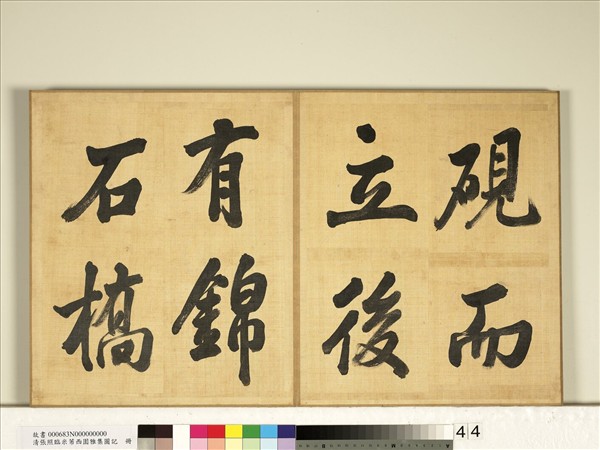 硯而
立後
有錦
石橋
故書 000683N000000000
清張照臨米芾西園雅集圖記 冊
44